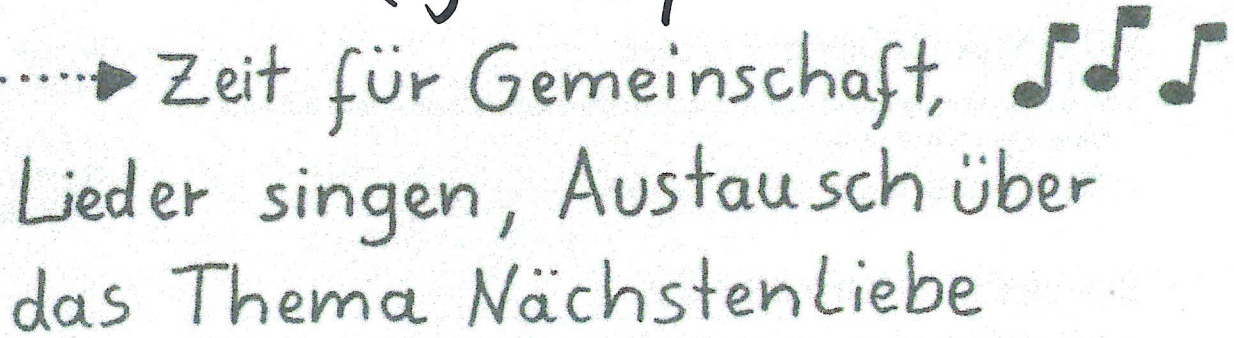 Zeit für Gemeinschaft,
Lieder singen, Austausch über
das Thema Nächstenliebe